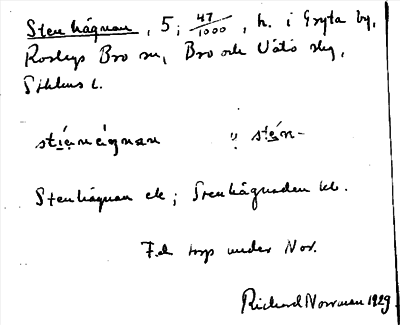 Stenhägnan, 5; 47/1000, h. i Gryta by,
Roslags Bro sn, Bro och Vätö skg,
Sthlms l.
stíẹnẹ́gnan „ stẹ́n-
Stenhägnan ek; Stenhägnaden kb.
F.d. torp under Nor.
Richard Norrman 1929.